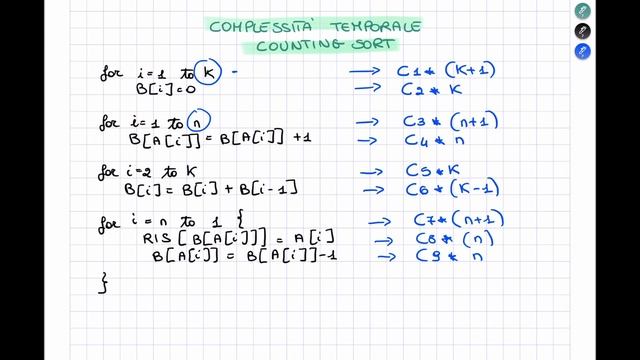 COMPLESSITÀ TEMPORALE
COUNTING SORT
for i=1 to K → C1 * (K+1)
B[i]=0 → C2 * K
for i=1 to n → C3 * (n+1)
B[A[i]] = B[A[i]] +1 → C4 * n
for i=2 to K → C5 * K
B[i] = B[i] + B[i-1] → C6 * (K-1)
for i = n to 1 { → C7 * (n+1)
RIS[B[A[i]]] = A[i] → C8 * (n)
B[A[i]] = B[A[i]]-1 → C9 * n
}